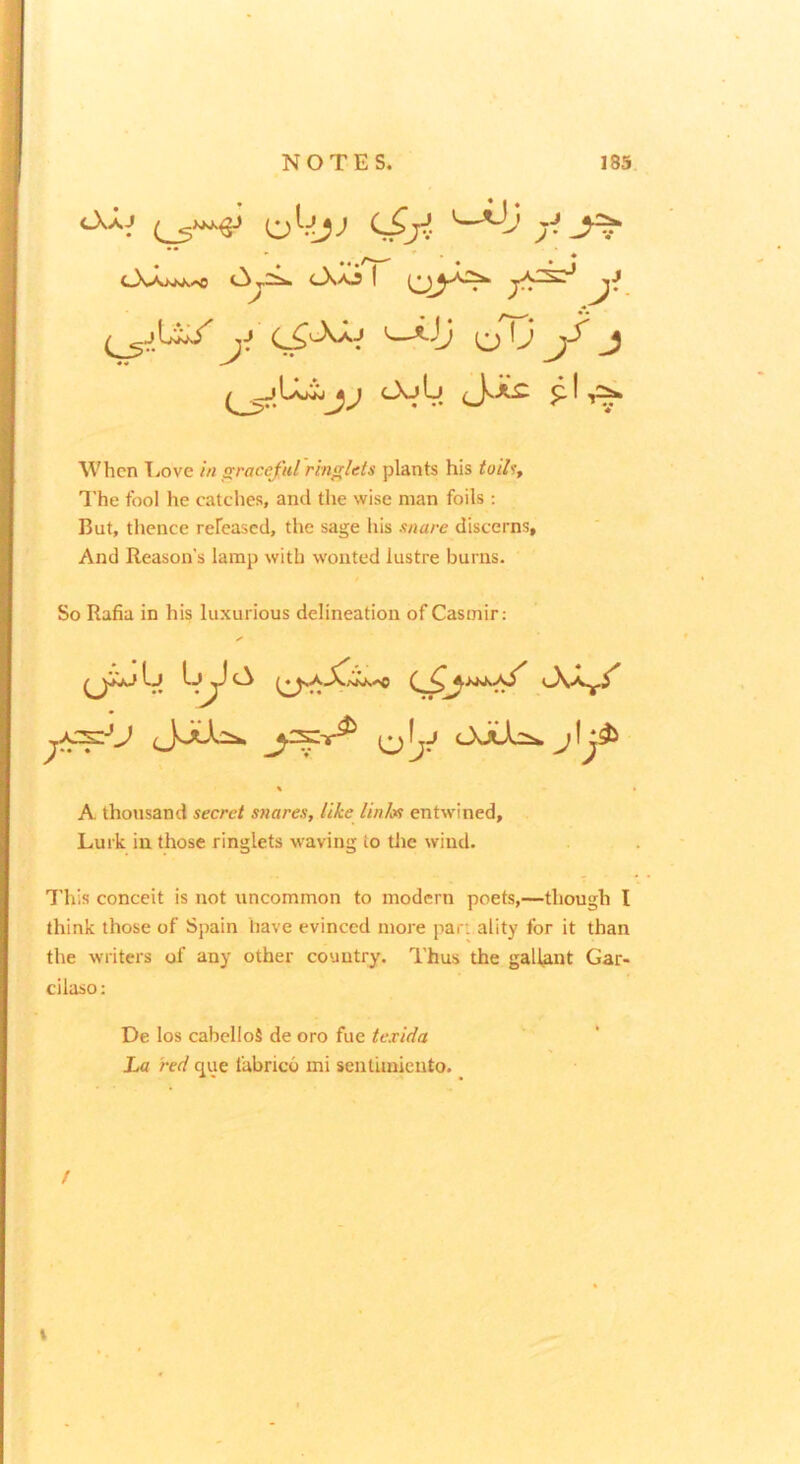 NOTES. 185
چو بر زلف پری رویان نهی بند
بزنجیر جنون آید خرد مند
و گر زان زلف بندی بر کشایی
چراغ عقل یابد روشنایی
When Love in graceful ringlets plants his toils,
The fool he catches, and the wise man foils :
But, thence released, the sage his snare discerns,
And Reason's lamp with wonted lustre burns.
So Rafia in his luxurious delineation of Casmir:
گیسوی مشکین
هزار حلقه بران زنجیر
A thousand secret snares, like links entwined,
Lurk in those ringlets waving to the wind.
This conceit is not uncommon to modern poets,—though I
think those of Spain have evinced more par ality for it than
the writers of any other country. Thus the gallant Gar-
cilaso:
De los cabellos de oro fue texida
La red que fabricó mi sentimiento.